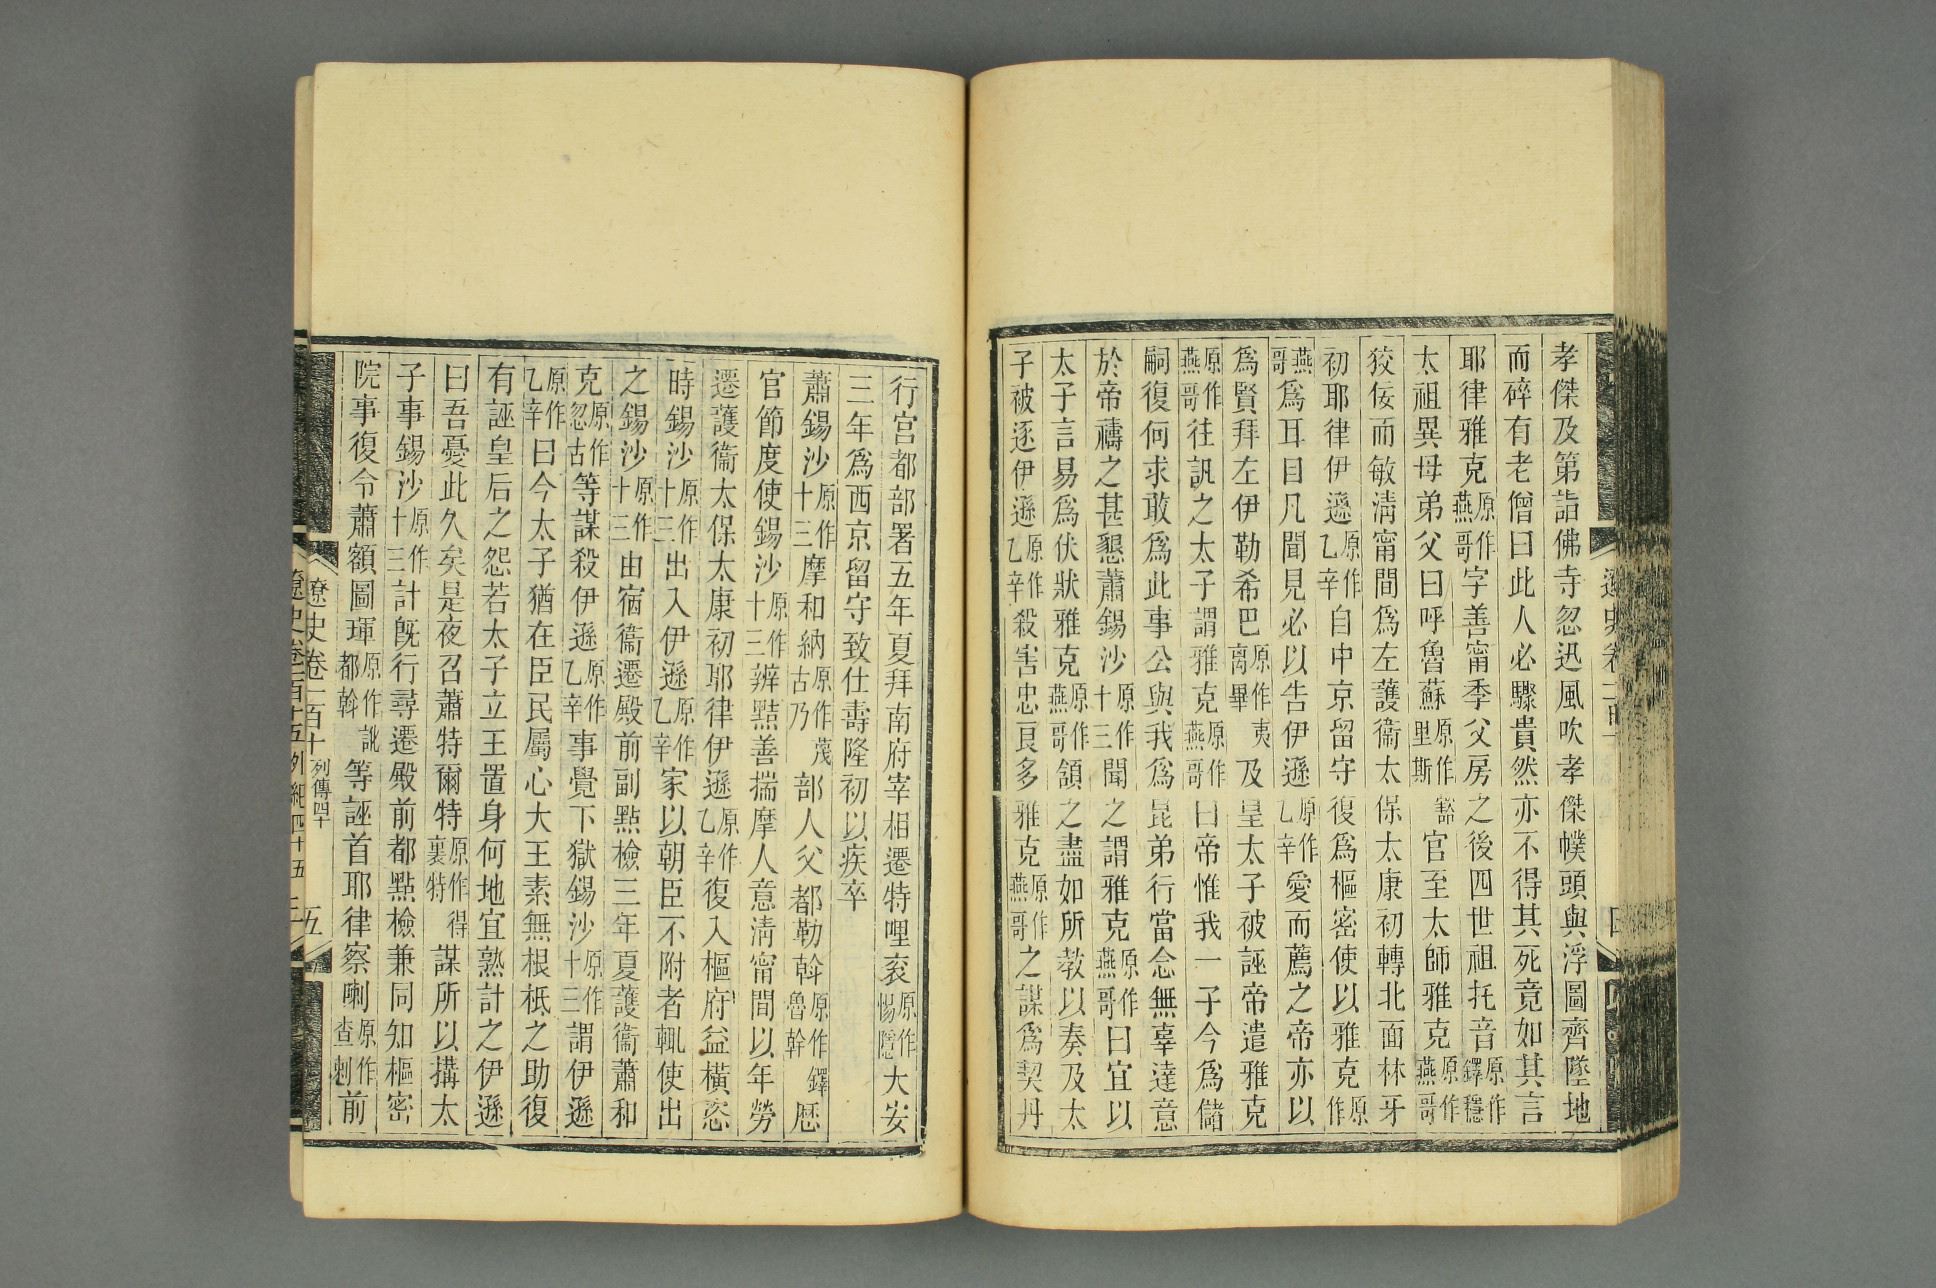 孝傑及第詣佛寺忽迅風吹孝傑幞頭與浮圖齊墜地
而碎有老僧曰此人必驟貴然亦不得其死竟如其言
耶律雅克原作燕哥字善甯季父房之後四世祖托音原作鐸穩
太祖異母弟父曰呼魯蘇原作豁里斯官至太師雅克原作燕哥
狡佞而敏淸甯間爲左護衞太保太康初轉北面林牙
初耶律伊遜原作乙辛自中京留守復爲樞密使以雅克原作
燕哥爲耳目凡聞見必以告伊遜原作乙辛愛而薦之帝亦以
爲賢拜左伊勒希巴原作夷离畢及皇太子被誣帝遣雅克
原作燕哥往訊之太子謂雅克原作燕哥曰帝惟我一子今爲儲
嗣復何求敢爲此事公與我爲昆弟行當念無辜達意
於帝禱之甚懇蕭錫沙原作十三聞之謂雅克原作燕哥曰宜以
太子言易爲伏狀雅克原作燕哥頷之盡如所敎以奏及太
子被逐伊遜原作乙辛殺害忠良多雅克原作燕哥之謀爲契丹
行宮都部署五年夏拜南府宰相遷特哩袞原作惕隱大安
三年爲西京留守致仕壽隆初以疾卒
蕭錫沙原作十三摩和納原作蔑古乃部人父都勒斡原作鐸魯斡歷
官節度使錫沙原作十三辨黠善揣摩人意淸甯間以年勞
遷護衞太保太康初耶律伊遜原作乙辛復入樞府益橫恣
時錫沙原作十三出入伊遜原作乙辛家以朝臣不附者輒使出
之錫沙原作十三由宿衞遷殿前副點檢三年夏護衞蕭和
克原作忽古等謀殺伊遜原作乙辛事覺下獄錫沙原作十三謂伊遜
原作乙辛曰今太子猶在臣民屬心大王素無根柢之助復
有誣皇后之怨若太子立王置身何地宜熟計之伊遜
曰吾憂此久矣是夜召蕭特爾特原作得裏特謀所以搆太
子事錫沙原作十三計旣行尋遷殿前都點檢兼同知樞密
院事復令蕭額圖琿原作訛都斡等誣首耶律察喇原作查剌前
遼史卷一百十 列傳四十 五